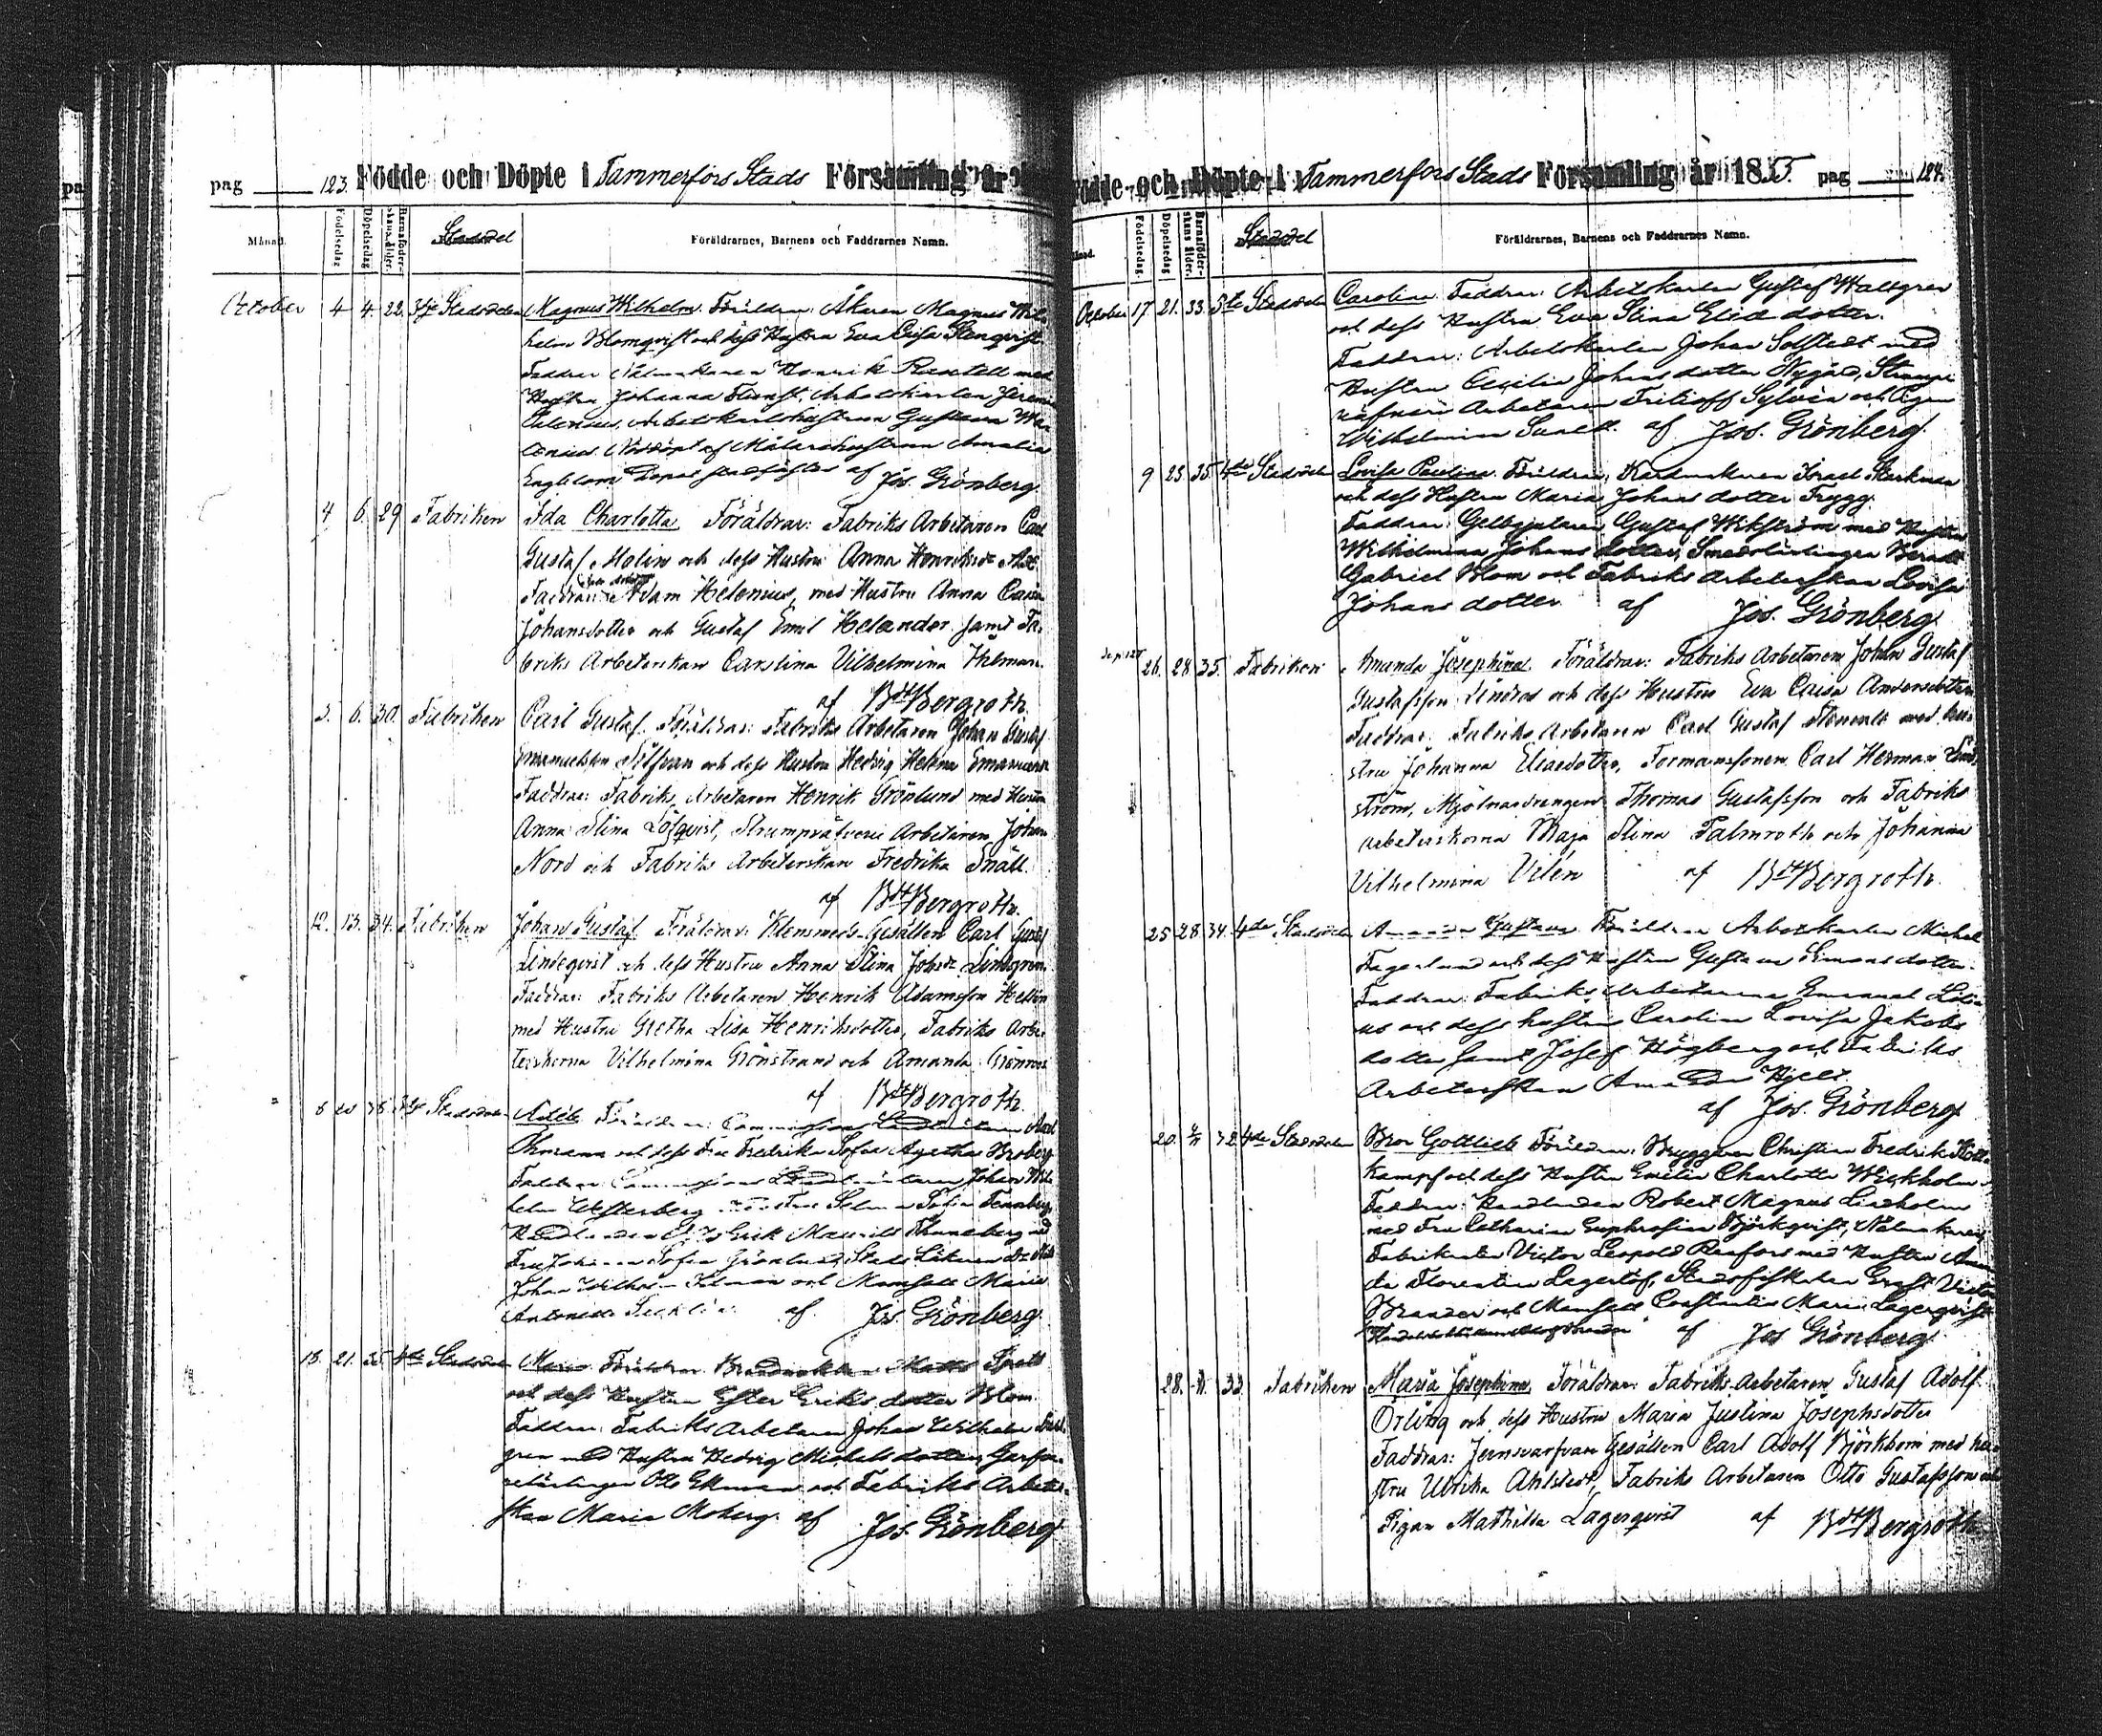 pag 123. Födde och Döpte i Tammerfors Stads Församling år
Månad. Födelsedag Döpelsedag Barnaföderskans ålder. Stadsdel Föräldrarnes, Barnens och Faddrarnes Namn.
October 4 4. 22. 3dje Stadsdelen Magnus Wilhelm. Föräldrar: Åkaren Magnus Wil-
helm Blomqvist och dess Hustru Eva Caisa Stenqvist
Faddrar Nålmakaren Henrik med
Hustru Johanna Arbetskarlen
Arbetskarlshustrun Gustava
Nöddöpt af Målarehustrun Amalia
Engblom Dopet stadfästes af Jos. Grönberg.
4 6. 29 Fabriken Ida Charlotta Föräldrar: Fabriks Arbetaren Carl
Gustaf Molin och dess Hustru Anna Henriksdr
Faddrar: Adam Helenius, med Hustru Anna Caisa
Johansdotter och Gustaf Emil Helander samt Fa-
briks Arbeterskan Carolina Vilhelmina
af Bdt Bergroth.
3. 6. 30. Fabriken Carl Gustaf. Föräldrar: Fabriks Arbetaren Johan Gustaf
Emanuelsson Silfvan och dess Hustru Hedvig Helena
Faddrar: Fabriks Arbetaren Henrik Grönlund med Hustru
Anna Stina Löfqvist, Strumpväfveri Arbetaren Johan
Nord och Fabriks Arbeterskan Fredrika Snäll.
af Bdt Bergroth.
12. 13. 34. Fabriken Johan Gustaf Föräldrar: Klensmeds-Gesällen Carl Gustaf
Lindeqvist och dess Hustru Anna Stina Johsdr Lindgren
Faddrar: Fabriks Arbetaren Henrik Adamsson Hellin
med Hustru Gretha Lisa Henriksdotter, Fabriks Arbe-
terskorna Vilhelmina Grönstrand och Amanda Grönroos
af Bdt Bergroth.
3dje Stadsdelen Adéle Föräldrar: Commissions Landtmätaren Axel
och dess Fru Fredrika Sofia Agatha Broberg
Faddrar Commissions Landtmätaren Johan Wil-
helm Westerberg med Fru Selma Sofia
Handlanden Erik Mauritz Thuneberg med
Fru Johanna Sofia Grönlund, Stads Läkaren Dr
Johan Wilhelm och Mamsell Maria
Antonette af Jos. Grönberg
18. 21. 35 4de Stadsdelen Maria Föräldrar Matts
och dess Hustru Ester Eriksdotter Blom.
Faddrar: Fabriks Arbetaren Johan Wilhelm
gren med Hustru Hedvig Michelsdotter, Garfva-
relärlingen Otto Ekman och Fabriks Arbeter-
skan Maria Moberg. af Jos. Grönberg
Födde och Döpte i Tammerfors Stads Församling år 1855. pag 124.
Månad. Födelsedag. Döpelsedag Barnaföderskans ålder. Stadsdel Föräldrarnes, Barnens och Faddrarnes Namn.
October 17. 21. 33. 5te Stadsdelen Carolina Faddrar: Arbetskarlen Gustaf Wallgren
och dess Hustru Eva Stina Eliædotter.
Faddrar: Arbetskarlen Johan Solstedt med
Hustru Cecilia Johansdotter Nygård, Strump-
väfveri Arbetaren Fritioff Sylvén och Pigan
Wilhelmina af Jos. Grönberg.
9 23 35. 4de Stadsdelen Lovisa Paulina. Föräldrar: Kardmakaren Israel Starkman
och dess Hustru Maria Johansdotter Trygg.
Faddrar: Gelbgjutaren Gustaf Wikström med Hustru
Wilhelmina Johansdotter, Smedslärlingen Berndt
Gabriel Blom och Fabriks Arbeterskan Lovisa
Johansdotter af Jos. Grönberg
26. 28 35. Fabriken Amanda Josephina. Föräldrar: Fabriks Arbetaren Johan Gustaf
Gustafsson Lindros och dess Hustru Eva Caisa Andersdotter
Faddrar: Fabriks Arbetaren Carl Gustaf med hu-
stru Johanna Eliædotter, Formanssonen Carl Herman Lind-
ström, Mjölnardrängen Thomas Gustafsson och Fabriks
arbeterskorna Maja Stina Palmroth och Johanna
Vilhelmina Vilén af Bdt Bergroth.
25 28 34. 4de Stadsdelen Amanda Gustava Föräldrar Arbetskarlen Michel
Fagerlund och dess Hustru Gustava Simonsdotter
Faddrar: Fabriks Arbetaren Emanuel
us och dess hustru Carolina Lovisa Jakobs-
dotter samt Josef Högberg och Fabriks
Arbeterskan Amanda Hjelt.
af Jos. Grönberg
20. 32 4de Stadsdelen Bror Gottlieb Föräldrar: Bryggaren Christian Fredrik
kampf och dess Hustru Emilia Charlotta Wickholm.
Faddrar: Handlanden Robert Magnus Lindholm
med Fru Catharina Euphrosina Björkqvist, Nålmakaren
Fabrikanten Victor Leopold Renfors med Hustru Aman-
da Florentina Lagerlöf, Stadsfiskalen Ernst Victor
Brander och Mamsell Constantia Maria Lagerqvist
af Jos Grönberg.
28. 33. Fabriken Maria Josephina, Föräldrar: Fabriks-Arbetaren Gustaf Adolf
Örling och dess Hustru Maria Justina Josephsdotter
Faddrar: Jernsvarfvare Gesällen Carl Adolf Björkbom med hu-
stru Ulrika Ahlstedt, Fabriks Arbetaren Otto Gustafsson och
Pigan Mathilda Lagerqvist af Bdt Bergroth